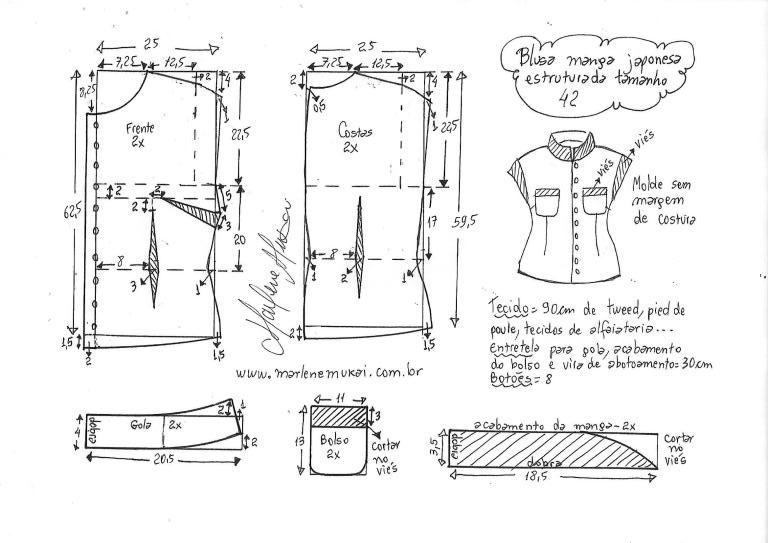 Blusa manga japonesa
estruturada tamanho
42
25
7,25
12,5
2
4
8,25
1
Frente
2x
22,5
2
2
5
2
3
62,5
20
8
3
1
1,5
2
1,5
25
7,25
12,5
2
2
4
0,5
1
Costas
2x
22,5
17
59,5
8
1
2
1
2
1,5
Marlene Mukai
viés
viés
Molde sem
margem
de costura
Tecido = 90cm de tweed, pied de
poule, tecidos de alfaiataria...
Entretela para gola, acabamento
do bolso e vira de abotoamento = 30cm
Botões = 8
www.marlenemukai.com.br
4
dobra
Gola
2x
2
1
2
20,5
11
3
13
Bolso
2x
Cortar
no
viés
acabamento da manga - 2x
3,5
dobra
dobra
Cortar
no
viés
18,5